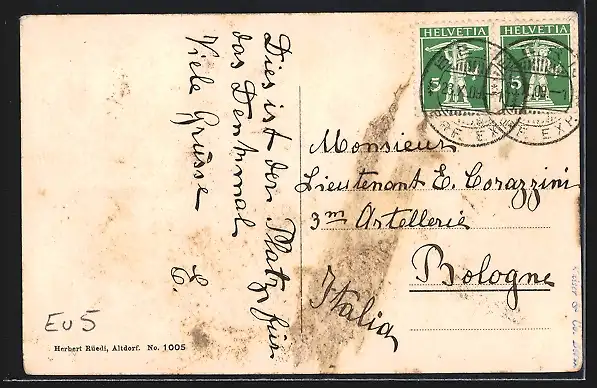 Dies ist der Platz für
das Denkmal
Viele Grüsse
E.
HELVETIA HELVETIA
5 5
Monsieur
Lieutenant E. Corazzini
3m Artellerie
Bologne
Italia
EU5
Herbert Rüedi, Altdorf. No. 1005